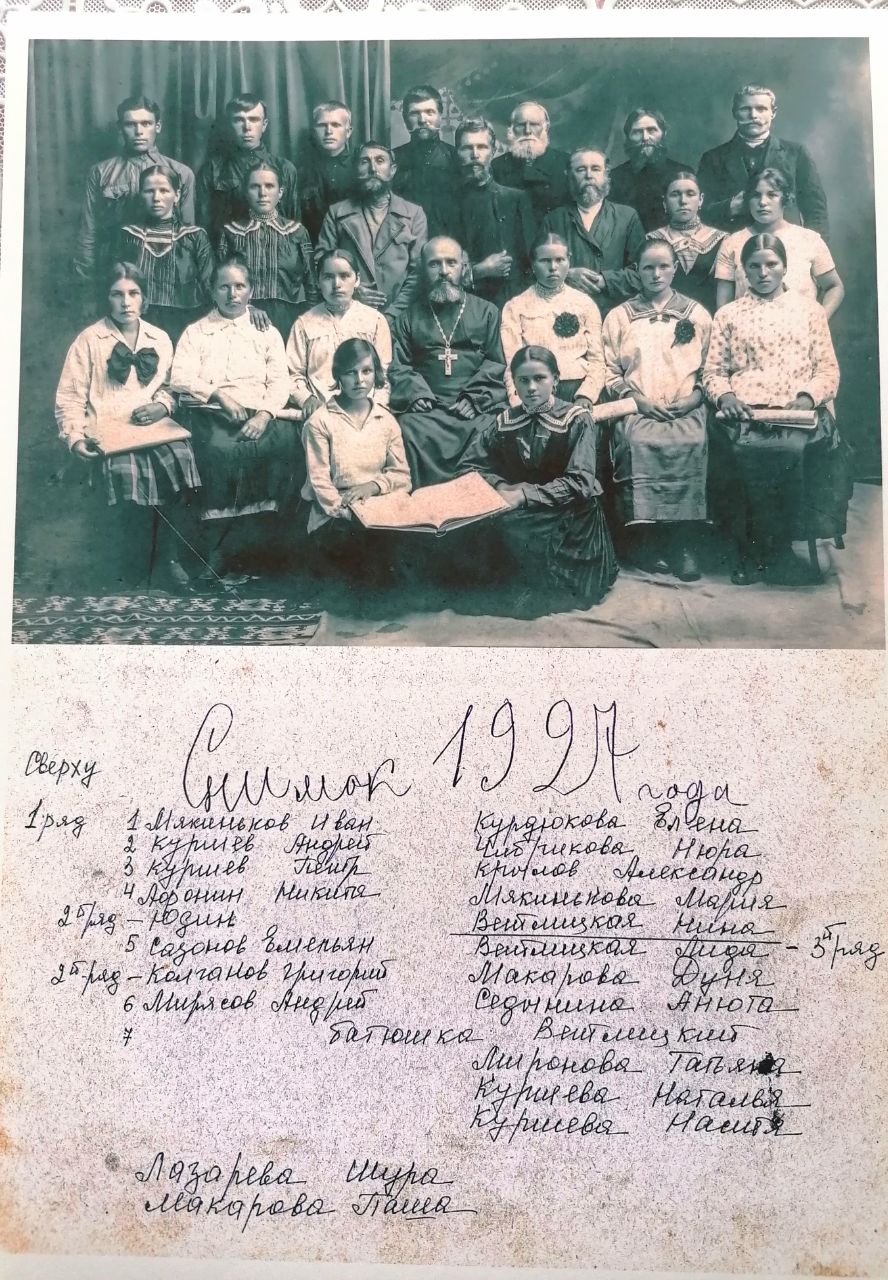 Снимок 1927 года
Сверху
1 ряд 1 Мякиньков Иван
2 Куршев Андрей
3 Куршев Петр
4 Афонин Никита
2й ряд - Юдин
5 Сазонов Емельян
2й ряд - Колганов Григорий
6 Мирясов Андрей
7 батюшка Вейтлицкий
Курдюкова Елена
Нюра
Крылов Александр
Мякинькова Мария
Вейтлицкая Нина
Вейтлицкая Лида - 3й ряд
Макарова Дуня
Седынина Анюта
Миронова Татьяна
Куршева Наталья
Куршева Настя
Лазарева Шура
Макарова Паша